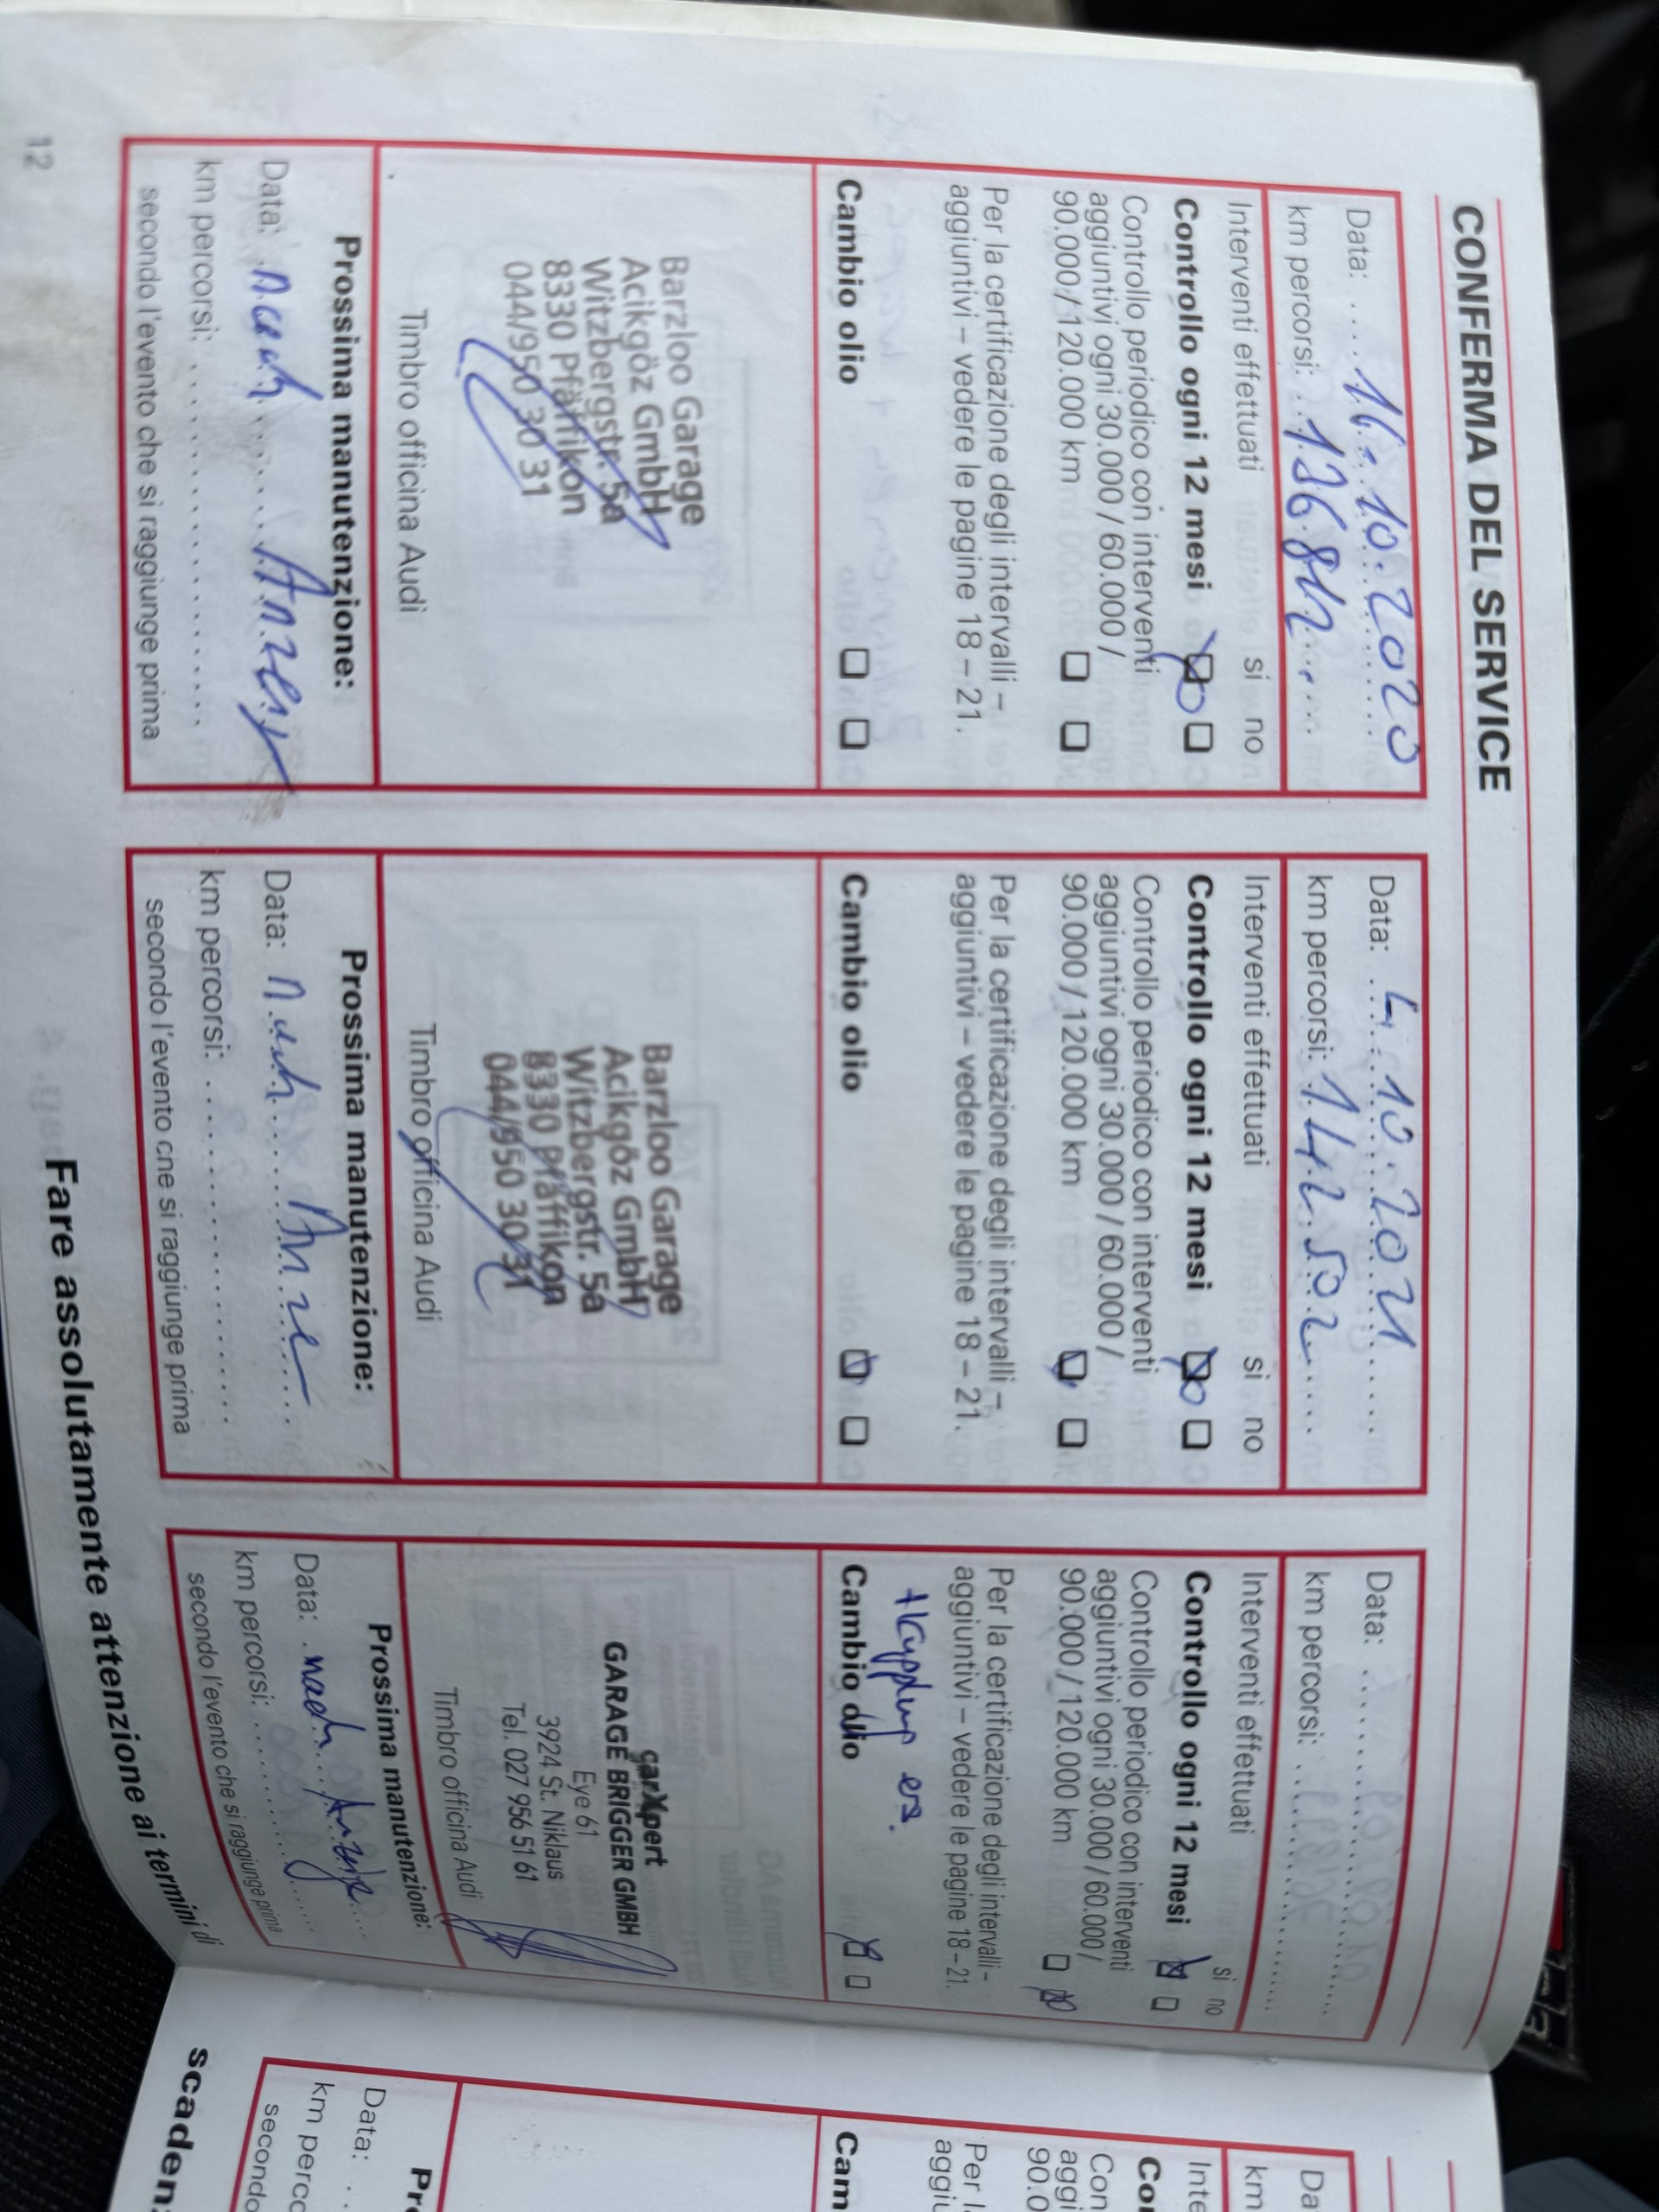 CONFERMA DEL SERVICE
Data: 16.10.2020
km percorsi: 136842
Interventi effettuati si no
Controllo ogni 12 mesi
Controllo periodico con interventi
aggiuntivi ogni 30.000 / 60.000 /
90.000 / 120.000 km
Per la certificazione degli intervalli –
aggiuntivi – vedere le pagine 18 – 21.
Cambio olio
Barzloo Garage
Acikgöz GmbH
Witzbergstr. 5a
8330 Pfäffikon
044/950 30 31
Timbro officina Audi
Prossima manutenzione:
Data: nach Anzeige
km percorsi:
secondo l'evento che si raggiunge prima
12
Data: 4.10.2021
km percorsi: 142.502
Interventi effettuati si no
Controllo ogni 12 mesi
Controllo periodico con interventi
aggiuntivi ogni 30.000 / 60.000 /
90.000 / 120.000 km
Per la certificazione degli intervalli –
aggiuntivi – vedere le pagine 18 – 21.
Cambio olio
Barzloo Garage
Acikgöz GmbH
Witzbergstr. 5a
8330 Pfäffikon
044/950 30 31
Timbro officina Audi
Prossima manutenzione:
Data: nach
km percorsi:
secondo l'evento che si raggiunge prima
Data:
km percorsi:
Interventi effettuati si no
Controllo ogni 12 mesi
Controllo periodico con interventi
aggiuntivi ogni 30.000 / 60.000 /
90.000 / 120.000 km
Per la certificazione degli intervalli –
aggiuntivi – vedere le pagine 18 – 21.
+Kupplung ers.
Cambio olio
carXpert
GARAGE BRIGGER GMBH
Eye 61
3924 St. Niklaus
Tel. 027 956 51 61
Timbro officina Audi
Prossima manutenzione:
Data: nach Anzeige
km percorsi:
secondo l'evento che si raggiunge prima
Fare assolutamente attenzione ai termini di
Da
km
Inte
Co
Con
aggi
90.0
Per l
aggiu
Cam
Pr
Data:
km perc
secondo
scaden